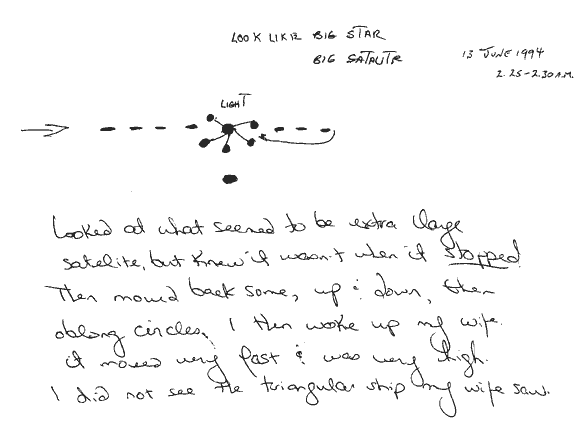 LOOK LIKE BIG STAR
BIG SATALITE
13 JUNE 1994
2.25-2.30 A.M.
LIGHT
Looked at what seemed to be extra large
satelite, but knew it wasn't when it stopped
Then moved back some, up & down, then
oblong circles. I then woke up my wife.
it moved very fast & was very high.
I did not see the triangular ship my wife saw.